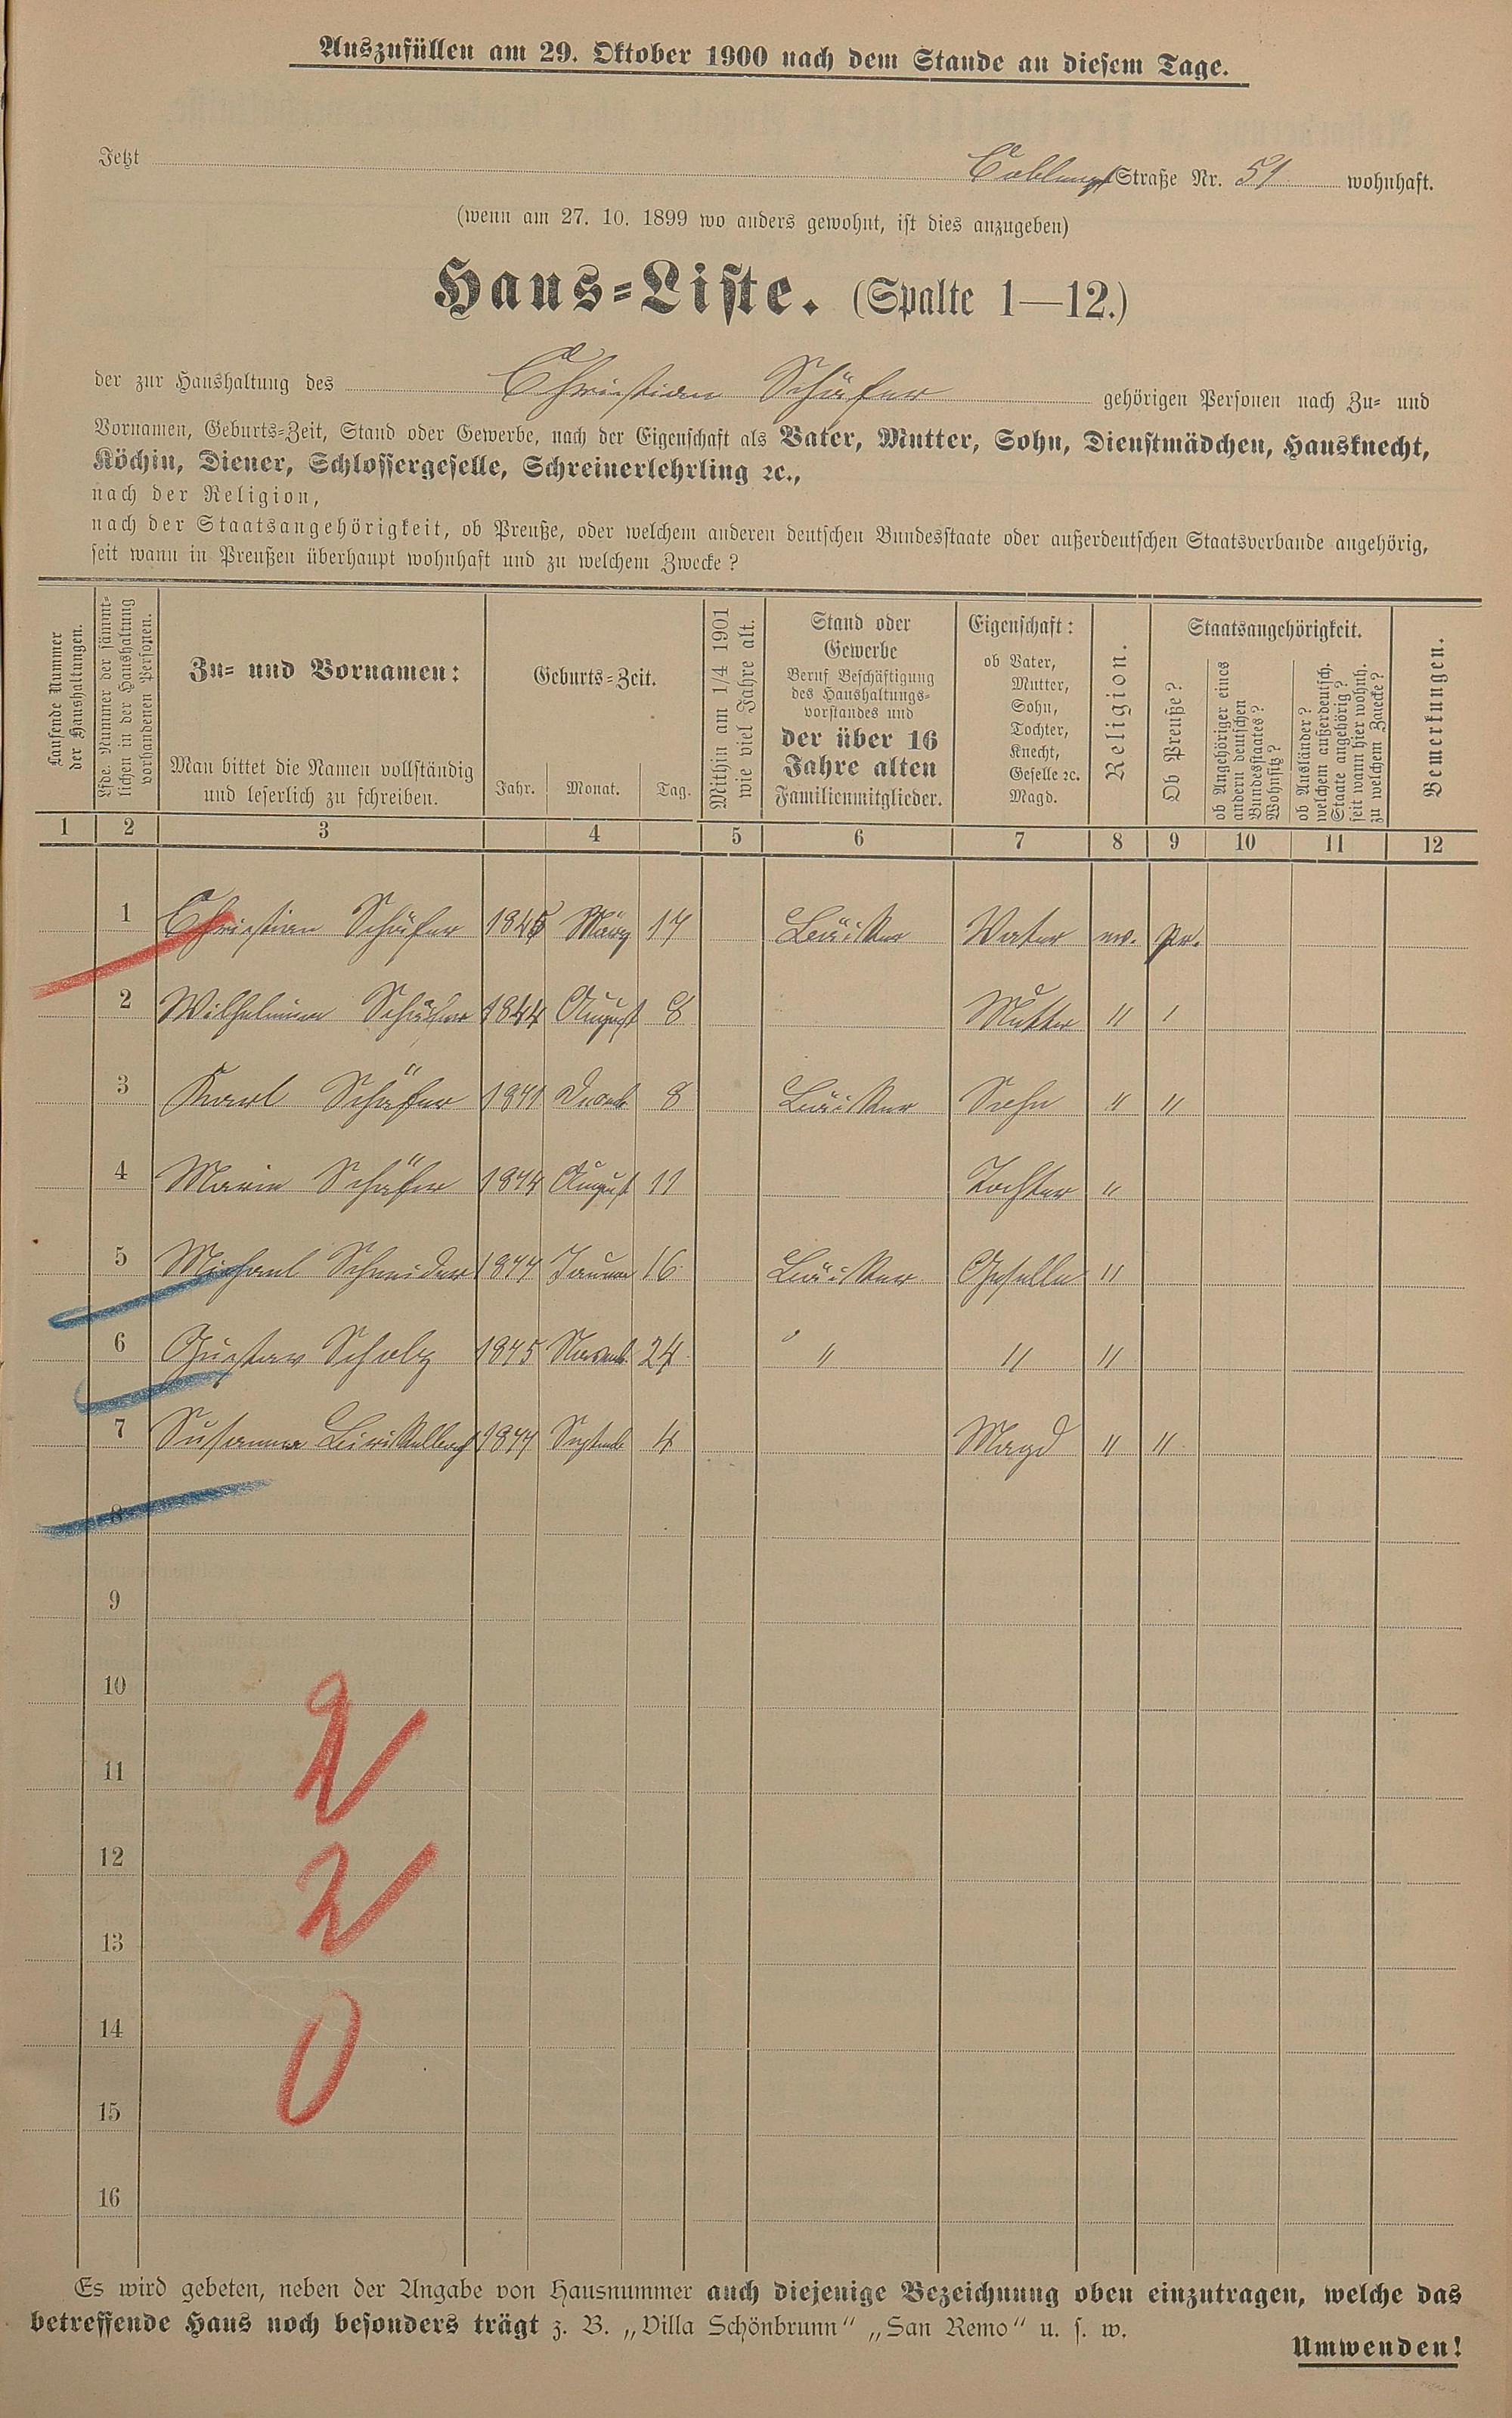 Auszufüllen am 29. Oktober 1900 nach dem Stande an diesem Tage.
Jetzt Coblenzer Straße Nr. 51 wohnhaft.
(wenn am 27. 10. 1899 wo anders gewohnt, ist dies anzugeben)
Haus-Liste. (Spalte 1—12.)
der zur Haushaltung des Christian Schäfer gehörigen Personen nach Zu- und
Vornamen, Geburts-Zeit, Stand oder Gewerbe, nach der Eigenschaft als Vater, Mutter, Sohn, Dienstmädchen, Hausknecht,
Köchin, Diener, Schlossergeselle, Schreinerlehrling ꝛc.,
nach der Religion,
nach der Staatsangehörigkeit, ob Preuße, oder welchem anderen deutschen Bundesstaate oder außerdeutschen Staatsverbande angehörig,
seit wann in Preußen überhaupt wohnhaft und zu welchem Zwecke?
Laufende Nummer
der Haushaltungen.
Lfde. Nummer der sämmt-
lichen in der Haushaltung
vorhandenen Personen.
Zu- und Vornamen:
Man bittet die Namen vollständig
und leserlich zu schreiben.
Geburts-Zeit.
Jahr. Monat. Tag.
Mithin am 1/4 1901
wie viel Jahre alt.
Stand oder
Gewerbe
Beruf Beschäftigung
des Haushaltungs-
vorstandes und
der über 16
Jahre alten
Familienmitglieder.
Eigenschaft:
ob Vater,
Mutter,
Sohn,
Tochter,
Knecht,
Geselle ꝛc.
Magd.
Religion.
Staatsangehörigkeit.
Ob Preuße?
ob Angehöriger eines
andern deutschen
Bundesstaates?
Wohnsitz?
ob Ausländer?
welchem außerdeutsch.
Staate angehörig?
seit wann hier wohnh.
zu welchem Zwecke?
Bemerkungen.
1 2 3 4 5 6 7 8 9 10 11 12
1 Christian Schäfer 1845 März 17 Vater ev. Pr.
2 Wilhelmine Schäfer 1844 August 8 Mutter " "
3 Karl Schäfer 8 Sohn " "
4 Marie Schäfer August 11 Tochter "
5 Michael Schneider 16 Geselle "
6 Gustav Scholz Novemb. 24 " " "
7 Susanna Septemb. 4 Magd " "
8
9
10
11
12
13
14
15
16
2
2
0
Es wird gebeten, neben der Angabe von Hausnummer auch diejenige Bezeichnung oben einzutragen, welche das
betreffende Haus noch besonders trägt z. B. „Villa Schönbrunn“ „San Remo“ u. s. w.
Umwenden!